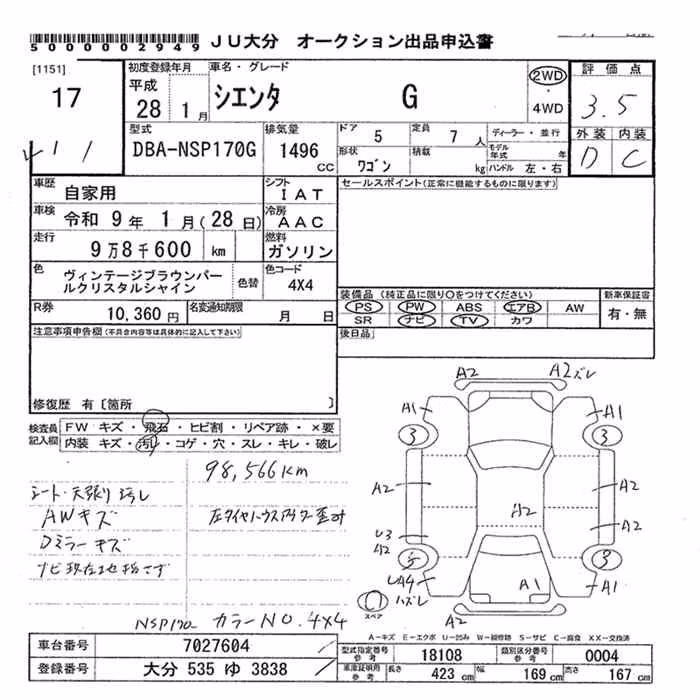 5000002949 JU大分 オークション出品申込書
[1151]
17
初度登録年月
平成
28 1月
車名・グレード
シエンタ G
2WD
・
4WD
評価点
3.5
外装 内装
D C
型式
DBA-NSP170G
排気量
1496 CC
ドア 5
定員 7人
ディーラー・並行
モデル年式 年
形状 ワゴン
積載 kg
ハンドル 左・右
車歴 自家用
シフト IAT
車検 令和 9年 1月(28日)
冷房 AAC
走行 9万8千600 km
燃料 ガソリン
色 ヴィンテージブラウンパールクリスタルシャイン
色替
色コード 4X4
R券 10,360円
名変通知期限 月 日
セールスポイント(正常に機能するものに限ります)
装備品(純正品に限り○をつけてください)
PS PW ABS エアB AW
SR ナビ TV カワ
新車保証書
有・無
後日品
注意事項申告欄(不具合内容等は具体的に記入して下さい)
修復歴 有〔箇所 〕
検査員記入欄
FW キズ・飛石・ヒビ割・リペア跡・×要
内装 キズ・汚れ・コゲ・穴・スレ・キレ・破レ
98,566KM
シート・天張り汚レ
AWキズ
左タイヤハウスアウター歪み
Dミラーキズ
ナビ現在地指さず
NSP170 カラーNO.4X4
A2 A2ズレ
A1 A1
3 3
A2 A2
A2 A2
U3
A2
3
UA4
ハズレ
A1 A1
スペア
A2
A-キズ E-エクボ U-凹み W-補修跡 S-サビ C-腐食 XX-交換済
車台番号 7027604
登録番号 大分 535 ゆ 3838
型式指定番号 参考 18108
類別区分番号 参考 0004
車庫証明用 参考 長さ 423 cm 幅 169 cm 高さ 167 cm